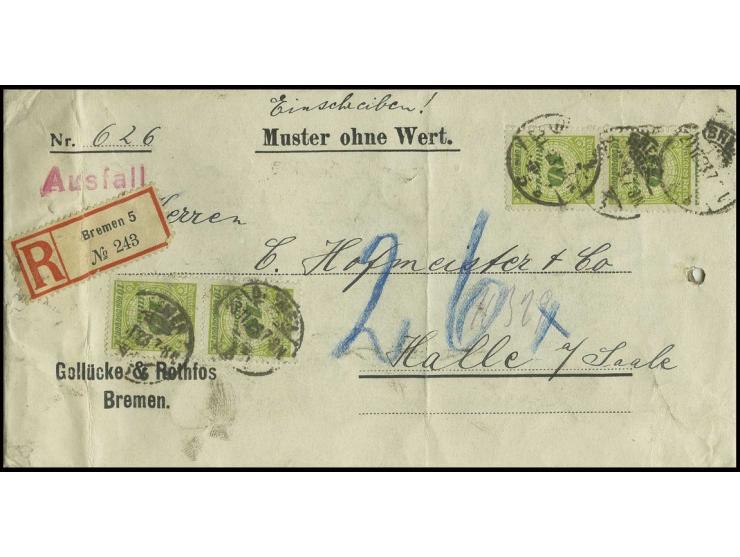 Einschreiben!
Nr. 626
Muster ohne Wert.
Ausfall
Herren
R Bremen 5
№ 243
C. Hofmeister & Co
26 x
Halle a/ Saale
Gollücke & Rothfos
Bremen.